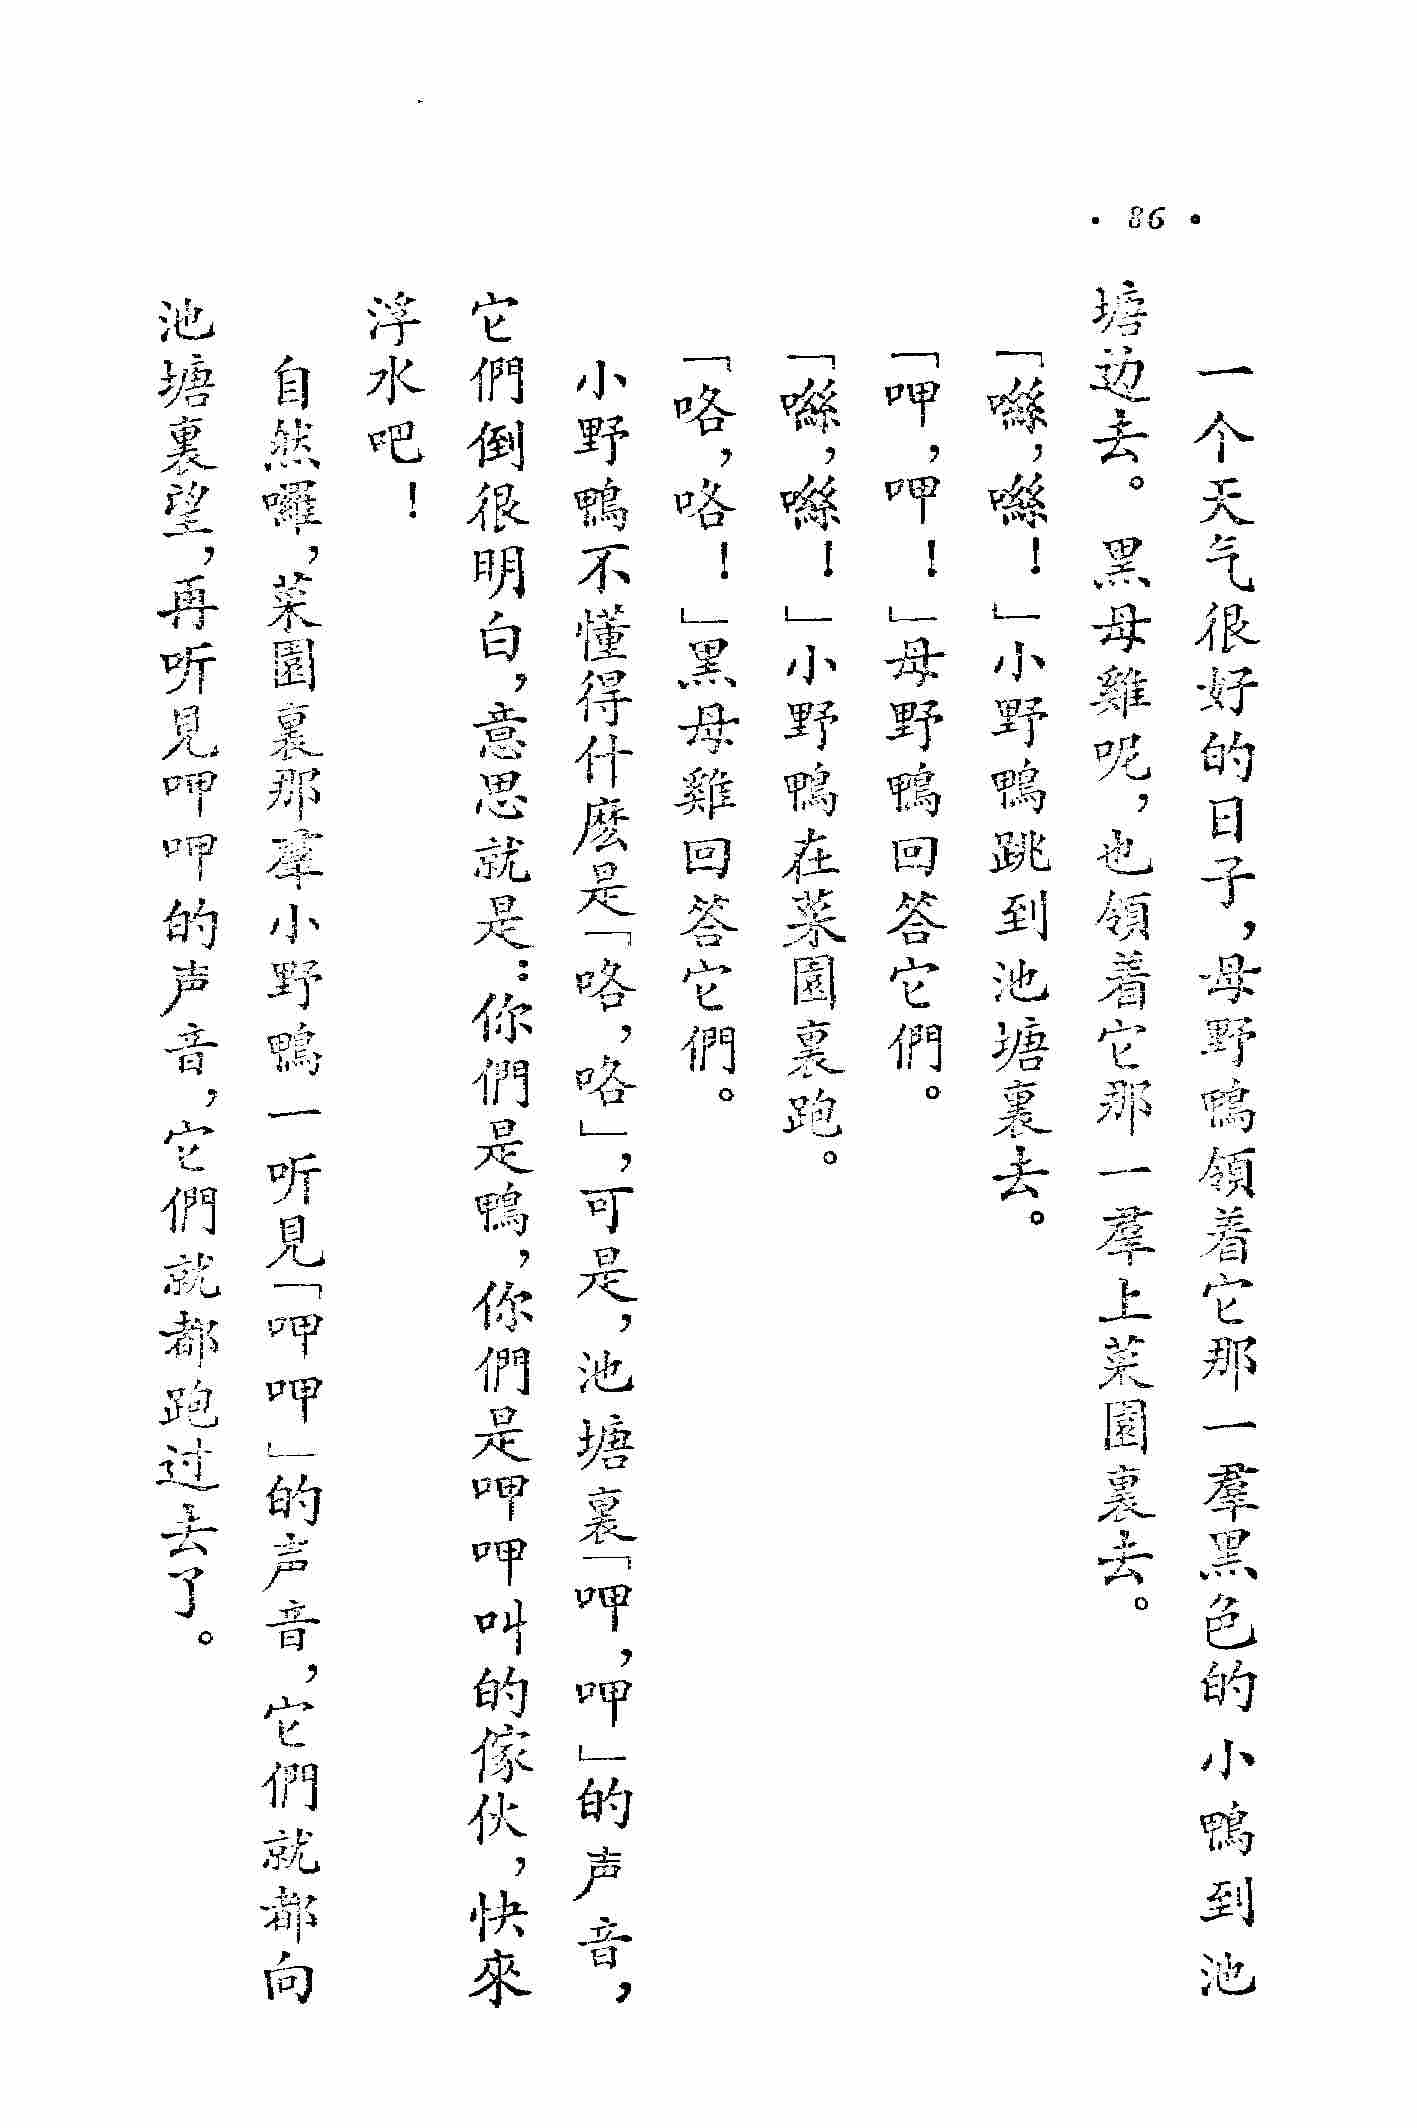 · 86 ·
一个天气很好的日子，母野鴨領着它那一羣黑色的小鴨到池
塘边去。黑母雞呢，也領着它那一羣上菜園裏去。
「噝，噝！」小野鴨跳到池塘裏去。
「呷，呷！」母野鴨回答它們。
「噝，噝！」小野鴨在菜園裏跑。
「咯，咯！」黑母雞回答它們。
小野鴨不懂得什麽是「咯，咯」，可是，池塘裏「呷，呷」的声音，
它們倒很明白，意思就是：你們是鴨，你們是呷呷叫的傢伙，快來
浮水吧！
自然囉，菜園裏那羣小野鴨一听見「呷呷」的声音，它們就都向
池塘裏望，再听見呷呷的声音，它們就都跑过去了。